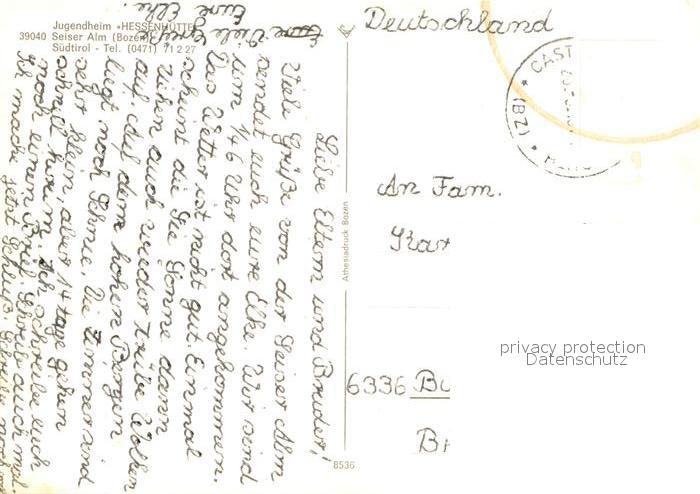 Jugendheim "HESSENHÜTTE"
39040 Seiser Alm (Bozen)
Südtirol - Tel. (0471) 7 12 27
Liebe Eltern und Bruder!
Viele Grüße von der Seiser Alm
sendet euch eure Elke. Wir sind
um 1/4 6 Uhr dort angekommen.
Das Wetter ist nicht gut. Einmal
scheint die Sonne dann
ziehen auch wieder trübe Wolken
auf. Auf dem hohen Bergen
liegt noch Schnee. Die Zimmer sind
sehr klein, aber 14 tage gehen
schnell herum. Ich schreibe euch
noch einen Brief. Schreib auch mal.
Ich mache jetzt Schluß. Schreibe
Viele Grüße
Eure Elke.
Athesiadruck Bozen
8536
Deutschland
CAST
(BZ)
An Fam.
6336
privacy protection
Datenschutz